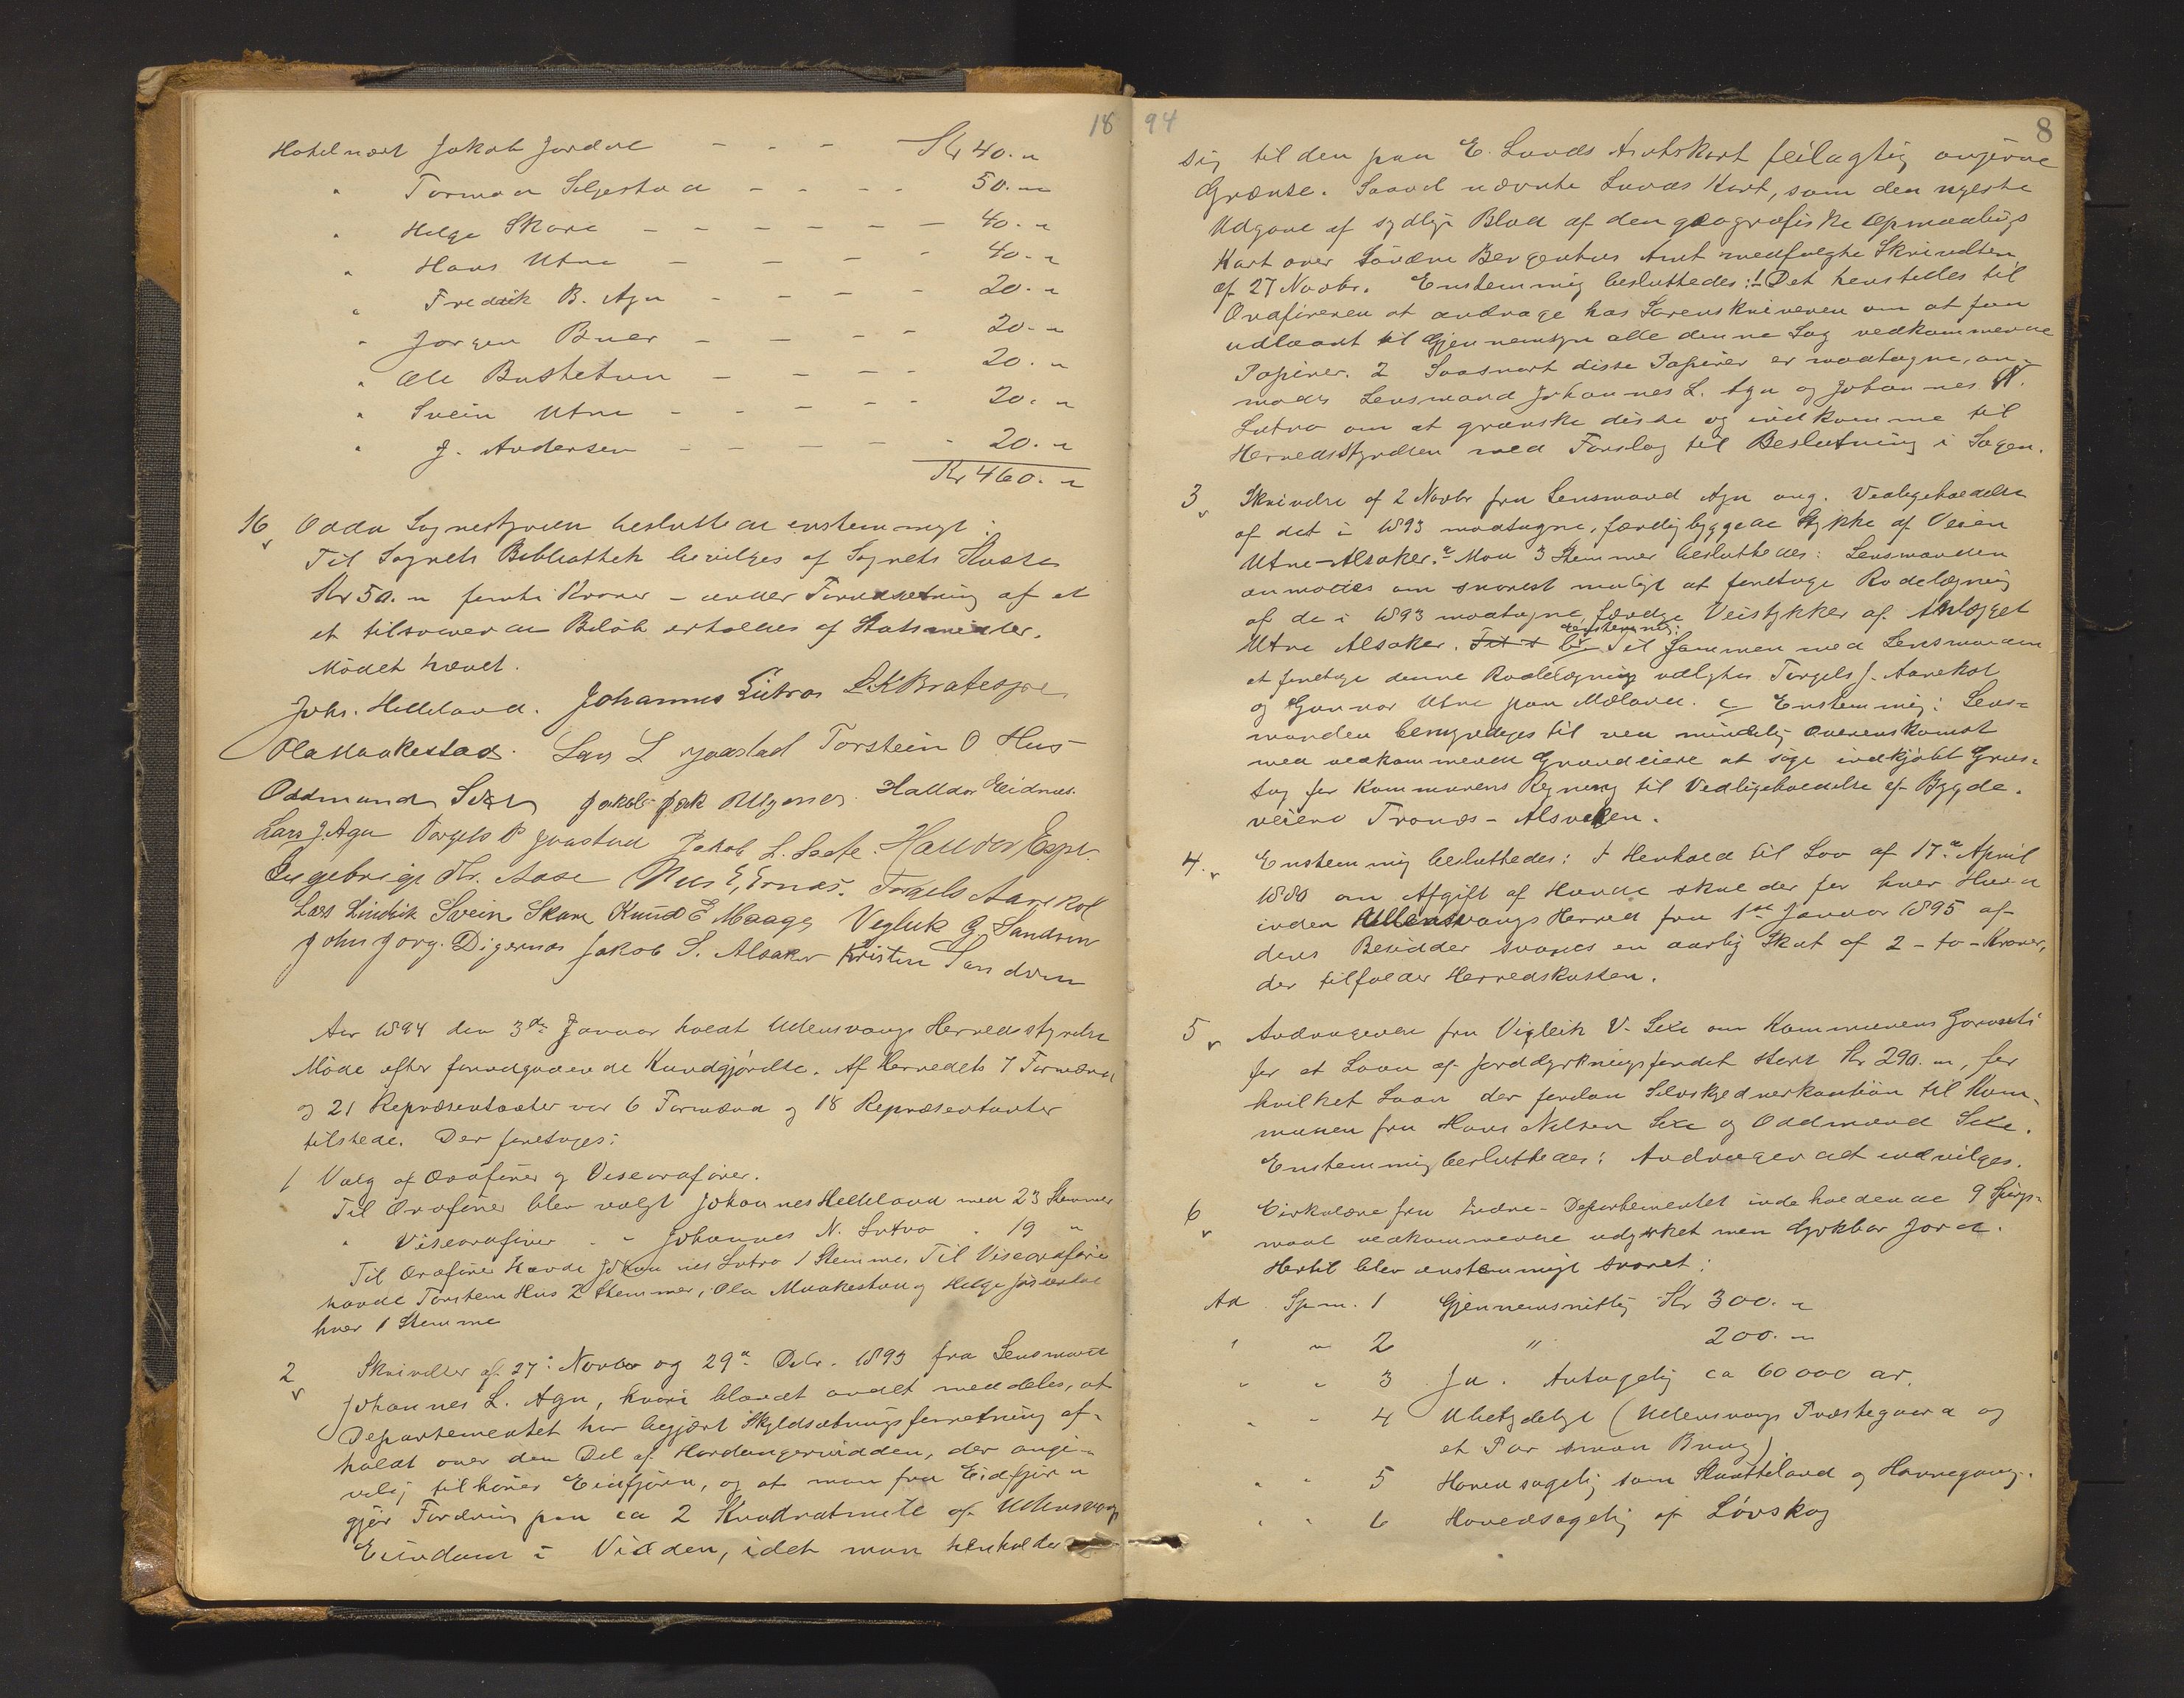 18
Hotelvært Jakob Jordal - - - Kr 40. "
" Tormod Seljestad - - - - 50. "
" Helge Skare - - - - - - 40. "
" Hans Utne - - - - 40. "
" Fredrik B. Aga - - - - 20. "
" Jørgen Buer - - - - 20. "
" Ole Bustetun - - - - 20. "
" Svein Utne - - - - - 20. "
" J. Andersen - - - - - 20. "
Kr 460. "
16 Odda Sognestyre besluttede enstemmigt:
Til Sognets Bibliothek bevilges af Sognets Kasse
Kr 50. " femti Kroner - under Forudsetning af et
et tilsvarende Beløb erholdes af Statsmidler.
Mødet hævet.
Johs. Helleland. Johannes Lutro
Ola Maakestad. Lars L Jaastad Torstein O Hus
Oddmund Sexe Jakob Halldor Eidnes
Lars J. Aga Torgels P Jaastad Jakob L. Sexe. Halldor Espe.
Ingebrigt Th. Aase Torgels Aarekol
Svein Skare Knud E Maage Vigleik G. Sandven
John Jørg. Digernæs Jakob S. Alsaker Kristen Sandven
Aar 1894 den 3die Januar holdt Ullensvangs Herredsstyrelse
Møde efter forudgaaende Kundgjørelse. Af Herredets 7 Formænd
og 21 Repræsentanter var 6 Formænd og 18 Repræsentanter
tilstede. Der foretoges:
1 Valg af Ordfører og Viseordfører.
Til Ordfører blev valgt Johannes Helleland med 23 Stemmer
" Viseordfører " " Johannes N. Lutro " 19 "
Til Ordfører havde Johannes Lutro 1 Stemme. Til Viseordfører
havde Torstein Hus 2 Stemmer, Ola Maakestad og Helge
hver 1 Stemme
2 Skrivelser af 27. Novbr og 29. Debr. 1893 fra Lensmand
Johannes L. Aga, hvori blandt andet meddeles, at
Departementet har begjært Skyldsætningsforretning af-
holdt over den Del af Hardangervidden, der angi-
velig tilhører Eidfjord, og at man fra Eidfjord
gjør Fordring paa ca 2 Kvadratmile af Ullensvangs
Eiendom i Vidden, idet man henholder
94
8
sig til den paa E. Lunds Amtskart feilagtig angivne
Grænse. Saavel nævnte Lunds Kart, som den nyeste
Udgave af sydlige Blad af den geografiske Opmaalings
Kart over Søndre Bergenhus Amt medfulgte Skrivelsen
af 27 Novbr. Enstemmig besluttedes: 1 Det henstilles til
Ordføreren at andrage hos Sorenskriveren om at faa
udlaant til Gjennemsyn alle denne Sag vedkommende
Papirer. 2 Saasnart disse Papirer er modtagne, an-
modes Lensmand Johannes L. Aga og Johannes N.
Lutro om at granske disse og indkomme til
Herredsstyrelsen med Forslag til Beslutning i Sagen.
3 Skrivelse af 2 Novbr fra Lensmand Aga ang. Vedligeholdelse
af det i 1893 modtagne, færdigbyggede Stykke af Veien
Utne-Alsaker. a Mod 3 Stemmer besluttedes: Lensmanden
anmodes om snarest muligt at foretage Rodelægning
af de i 1893 modtagne færdige Veistykker af Anlægget
Utne Alsaker. b Enstemmig: Til sammen med Lensmanden
at foretage denne Rodelægning valgtes Torgels J. Aarekol
og Gunnar Utne paa Mæland. c Enstemmig: Lens-
manden bemyndiges til ved mindelig Overenskomst
med vedkommende Grundeiere at søge indkjøbt Grus-
tag for Kommunens Regning til Vedligeholdelse af Bygde-
veiene Tronæs - Alsaker.
4. Enstemmig besluttedes: I Henhold til Lov af 17. April
1880 om Afgift af Hunde skal der for hver Hund
inden Ullensvangs Herred fra 1ste Januar 1895 af
dens Besidder svares en aarlig Skat af 2 - to - Kroner,
der tilfalder Herredskassen.
5 Andragende fra Vigleik V. Sexe om Kommunens Garanti
for et Laan af Jorddyrkningsfondet stort Kr 290. ", for
hvilket Laan der forelaa Selvskyldnerkaution til Kom-
munen fra Hans Nilsen Sexe og Oddmund Sexe.
Enstemmig besluttedes: Andragendet indvilges.
6 Cirkulære fra Indre-Departementet indeholdende 9 Spørgs-
maal vedkommende udyrket men dyrkbar Jord.
Hertil blev enstemmigt svaret:
Ad Spm. 1 Gjennemsnitlig Kr 300. "
" " 2 " 200. "
" " 3 Ja. Antagelig ca 60000 ar.
" " 4 Ubetydeligt (Ullensvangs Præstegaard og
et Par smaa Brug)
" " 5 Hovedsagelig som Slaatteland og Havnegang.
" " 6 Hovedsagelig af Løvskog